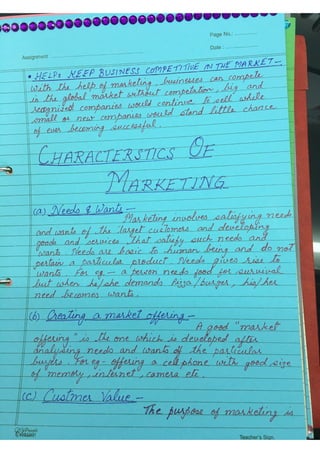 Page No.:
Date:
Assignment
• HELPS KEEP BUSINESS COMPETITIVE IN THE MARKET -
With the help of marketing, businesses can compete
in the global market without competation, big and
recognised companies would continue to sell while
small or new companies would stand little chance
of ever becoming successful.
CHARACTERSTICS OF
MARKETING
(a) Needs & Wants -
Marketing involves satisfying needs
and wants of the target customers and developing
goods and services that satisfy such needs and
wants. Needs are basic to human being and do not
pertain a particular product. Needs gives rise to
wants. For eg - a person needs food for survival
but when he/she demands Pizza/burger, his/her
need becomes wants.
(b) Creating a market offering -
A good "market
offering" is the one which is developed after
analysing needs and wants of the particular
buyers. For eg - offering a cellphone with good size
of memory, internet, camera etc.
(c) Custmer Value -
The purpose of marketing is
Teacher's Sign.